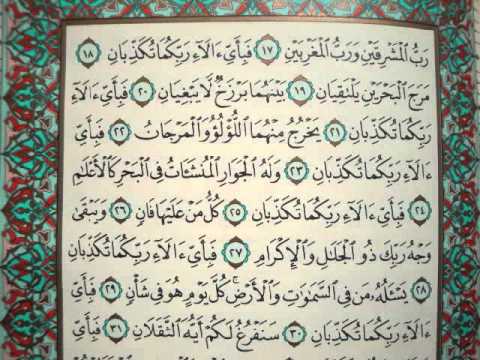 رَبُّ ٱلْمَشْرِقَيْنِ وَرَبُّ ٱلْمَغْرِبَيْنِ ١٧ فَبِأَىِّ ءَالَآءِ رَبِّكُمَا تُكَذِّبَانِ ١٨
مَرَجَ ٱلْبَحْرَيْنِ يَلْتَقِيَانِ ١٩ بَيْنَهُمَا بَرْزَخٌ لَّا يَبْغِيَانِ ٢٠ فَبِأَىِّ ءَالَآءِ
رَبِّكُمَا تُكَذِّبَانِ ٢١ يَخْرُجُ مِنْهُمَا ٱللُّؤْلُؤُ وَٱلْمَرْجَانُ ٢٢ فَبِأَىِّ
ءَالَآءِ رَبِّكُمَا تُكَذِّبَانِ ٢٣ وَلَهُ ٱلْجَوَارِ ٱلْمُنشَـَٔاتُ فِى ٱلْبَحْرِ كَٱلْأَعْلَٰمِ
٢٤ فَبِأَىِّ ءَالَآءِ رَبِّكُمَا تُكَذِّبَانِ ٢٥ كُلُّ مَنْ عَلَيْهَا فَانٍ ٢٦ وَيَبْقَىٰ
وَجْهُ رَبِّكَ ذُو ٱلْجَلَٰلِ وَٱلْإِكْرَامِ ٢٧ فَبِأَىِّ ءَالَآءِ رَبِّكُمَا تُكَذِّبَانِ
٢٨ يَسْـَٔلُهُۥ مَن فِى ٱلسَّمَٰوَٰتِ وَٱلْأَرْضِ ۚ كُلَّ يَوْمٍ هُوَ فِى شَأْنٍ ٢٩ فَبِأَىِّ
ءَالَآءِ رَبِّكُمَا تُكَذِّبَانِ ٣٠ سَنَفْرُغُ لَكُمْ أَيُّهَ ٱلثَّقَلَانِ ٣١ فَبِأَىِّ